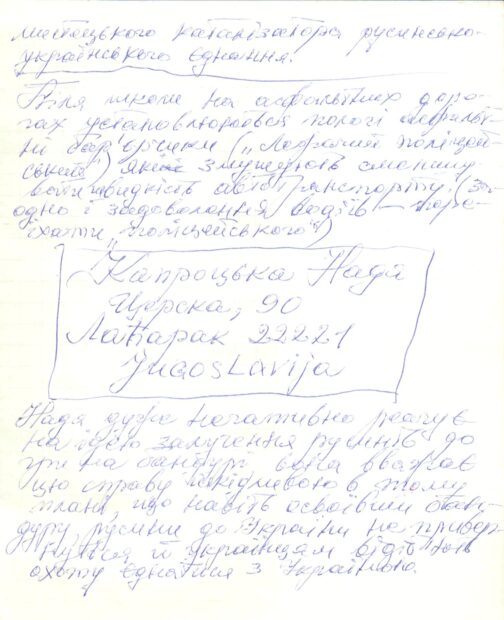 мистецького каталізатора русинсько-
українського єднання.
Біля школи на асфальтних доро-
гах установлюються пологі асфальт-
ні бар'єрчики ("Лежачий поліцей-
ський") які змушують зменшу-
вати швидкість автотранспорту. (За
одно і задоволення водіїв — пере-
їхати "поліцейського")
Капроцька Надя
Церска, 90
Лаћарак 22221
Jugoslavija
Надя дуже негативно реагує
на ідею залучення русинів до
гри на бандурі вона вважає
цю справу шкідливою в тому
плані, що навіть освоївши бан-
дуру, русини до України не привер-
нуться й українцям відіб'ють
охоту єднатися з Україною.